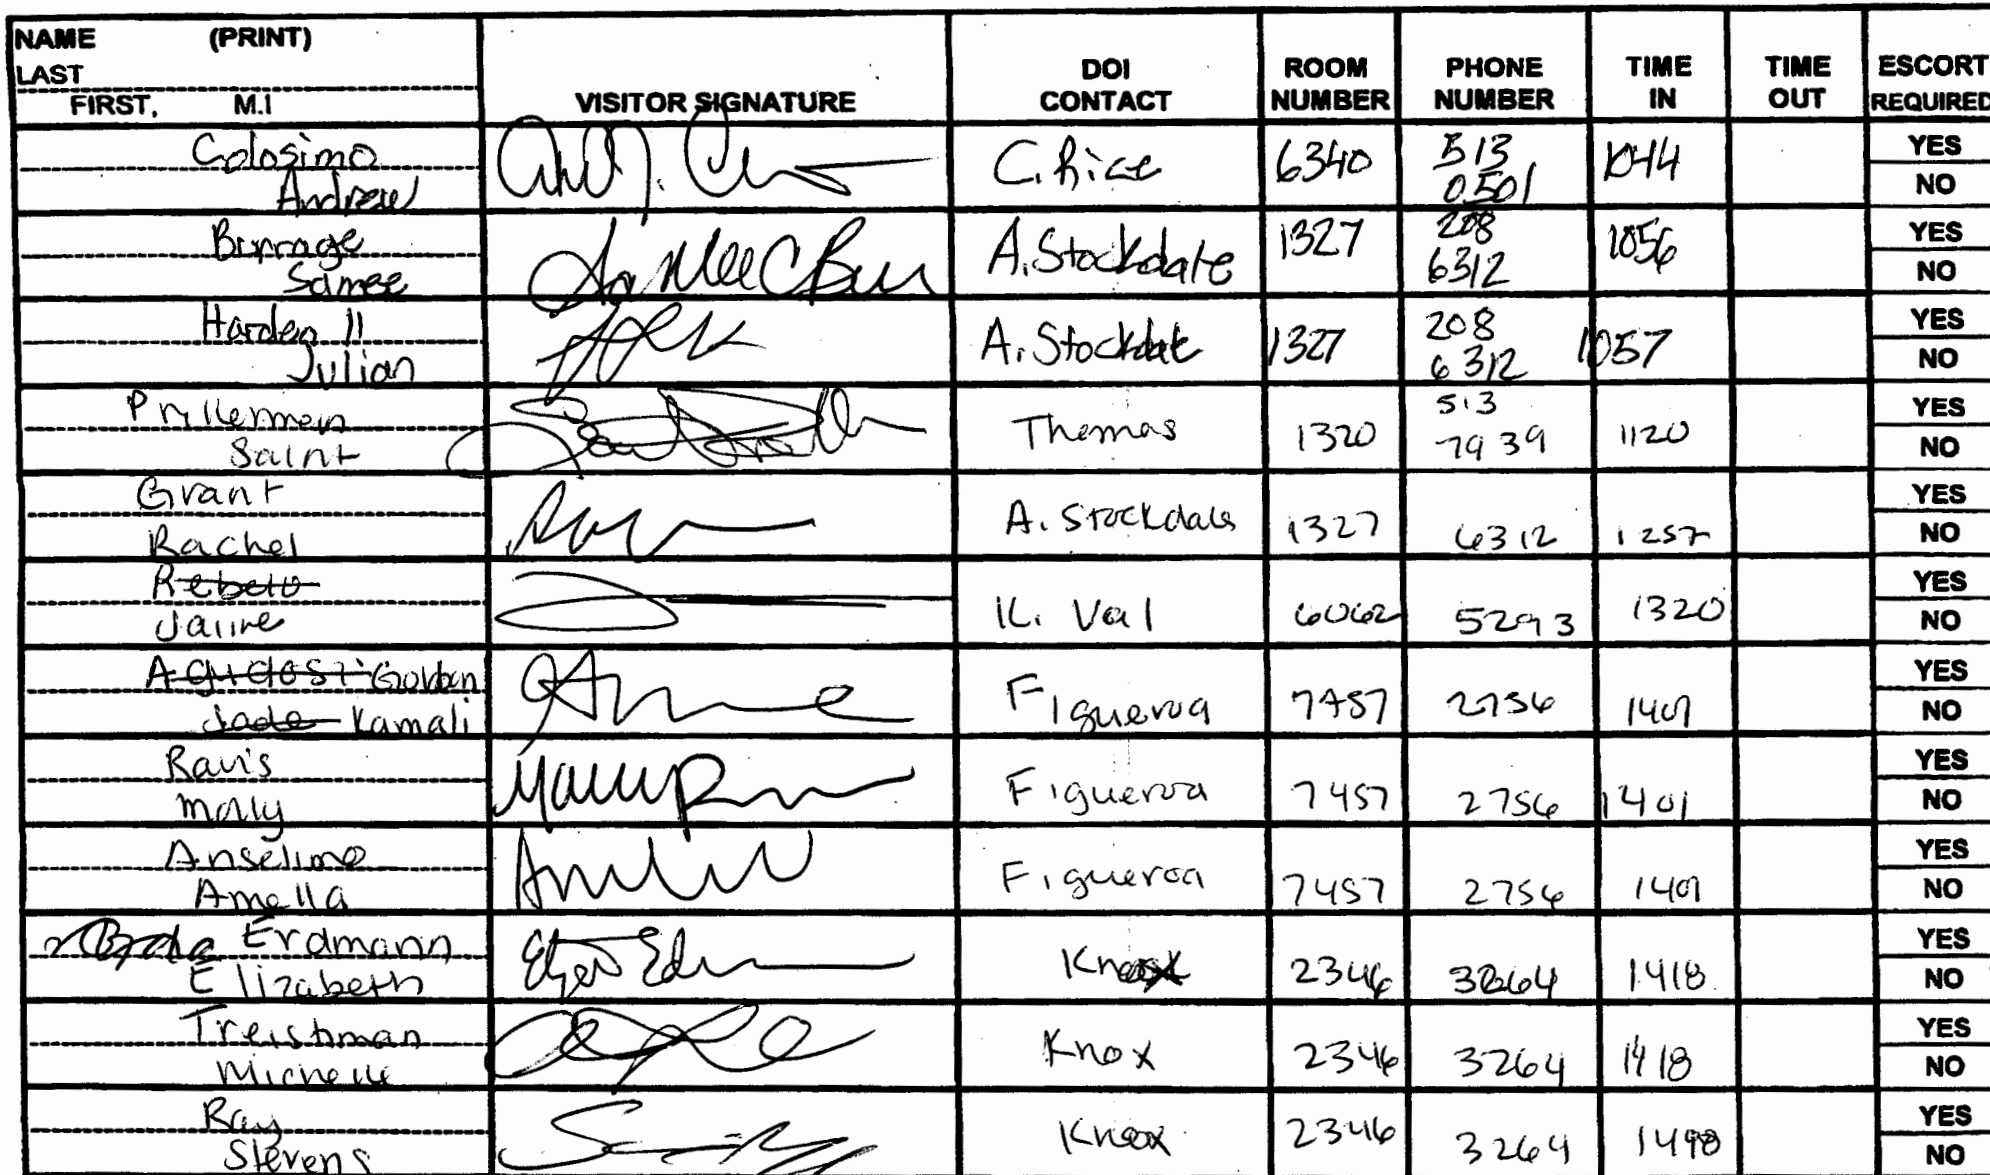 NAME (PRINT)
LAST
FIRST, M.I
VISITOR SIGNATURE
DOI CONTACT
ROOM NUMBER
PHONE NUMBER
TIME IN
TIME OUT
ESCORT REQUIRED
Colosimo
Andrew
C. Rice 6340 513 0501 1044
YES
NO
Burrage
Samee
A. Stockdate 1327 208 6312 1056
YES
NO
Harden II
Julian
A. Stockdale 1327 208 6312 1057
YES
NO
Prillerman
Saint
Thomas 1320 513 7939 1120
YES
NO
Grant
Rachel
A. Stockdale 1327 6312 1257
YES
NO
Jaime
K. Val 6062 5293 1320
YES
NO
Gorban
Jade Kamali
Figueroa 7457 2756 1401
YES
NO
Ravis
Molly
Figueroa 7457 2756 1401
YES
NO
Anselimo
Amella
Figueroa 7457 2756 1401
YES
NO
Erdmann
Elizabeth
Knox 2346 3264 1418
YES
NO
Treishman
Michelle
Knox 2346 3264 1418
YES
NO
Ray
Stevens
Knox 2346 3264
YES
NO